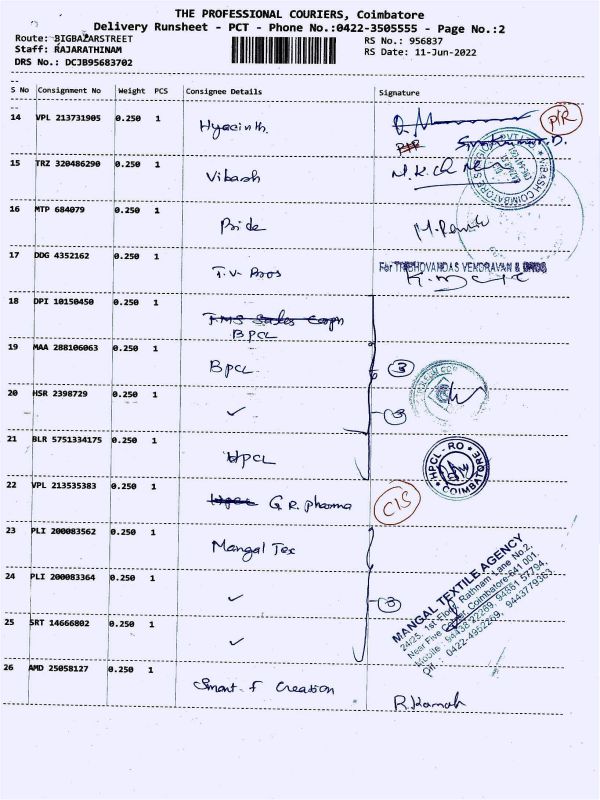 THE PROFESSIONAL COURIERS, Coimbatore
Delivery Runsheet - PCT - Phone No.:0422-3505555 - Page No.:2
Route: BIGBAZARSTREET
RS No.: 956837
Staff: RAJARATHINAM
RS Date: 11-Jun-2022
DRS No.: DCJB95683702
S No Consignment No Weight PCS Consignee Details Signature
14 VPL 213731905 0.250 1 Hyacinth. PIR
15 TRZ 320486290 0.250 1 Vikash
16 MTP 684079 0.250 1 Pride
17 DDG 4352162 0.250 1 T.V. Bros
For TRIBHOVANDAS VENDRAVAN & BROS
18 DPI 10150450 0.250 1 TMS Sales Corpn
BPCL
19 MAA 288106063 0.250 1 BPCL 3
20 HSR 2398729 0.250 1 ✓
21 BLR 5751334175 0.250 1 HPCL
HPCL - RO
COIMBATORE
22 VPL 213535383 0.250 1 G.R. Pharma CIS
23 PLI 200083562 0.250 1 Mangal Tex
24 PLI 200083364 0.250 1 ✓ 3
25 SRT 14666802 0.250 1 ✓
MANGAL TEXTILE AGENCY
24/25, 1st Floor, Rathnam Lane No.2,
Near Five Corner, Coimbatore-641 001.
Mobile : 94438 22269, 94861 57794,
Ph : 0422-4952269, 9443779363
26 AMD 25058127 0.250 1 Smart-f Creation R. Kamah